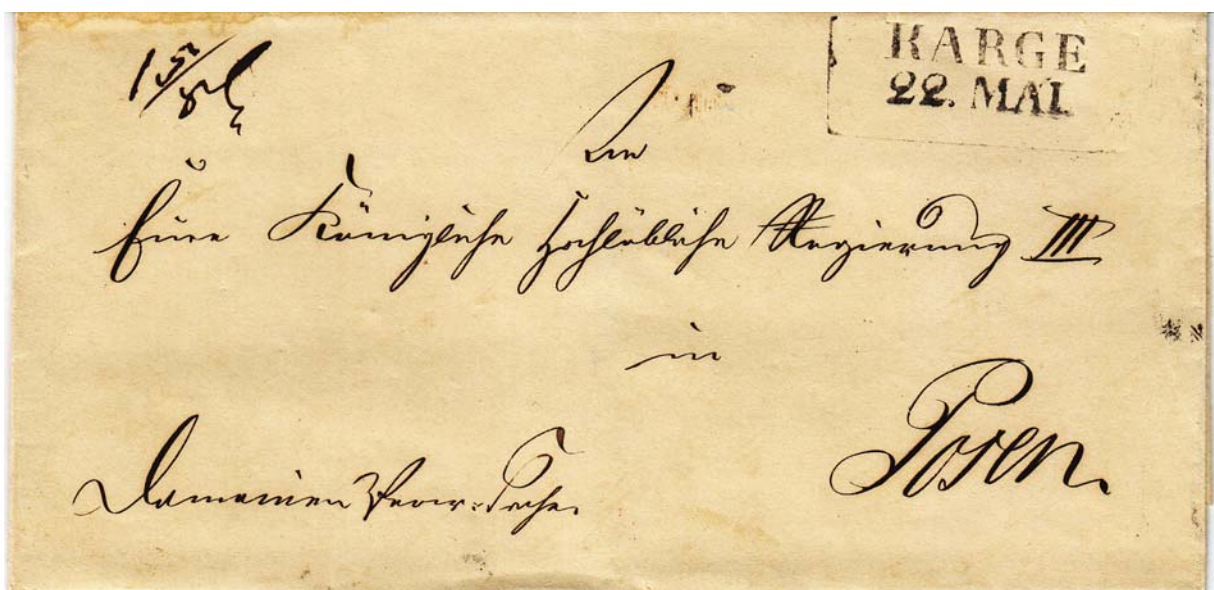 KARGE
22. MAI.
1 5/8
An
Eine Königliche Hochlöbliche Regierung III
in
Posen.
Domainen Verw: Sache.